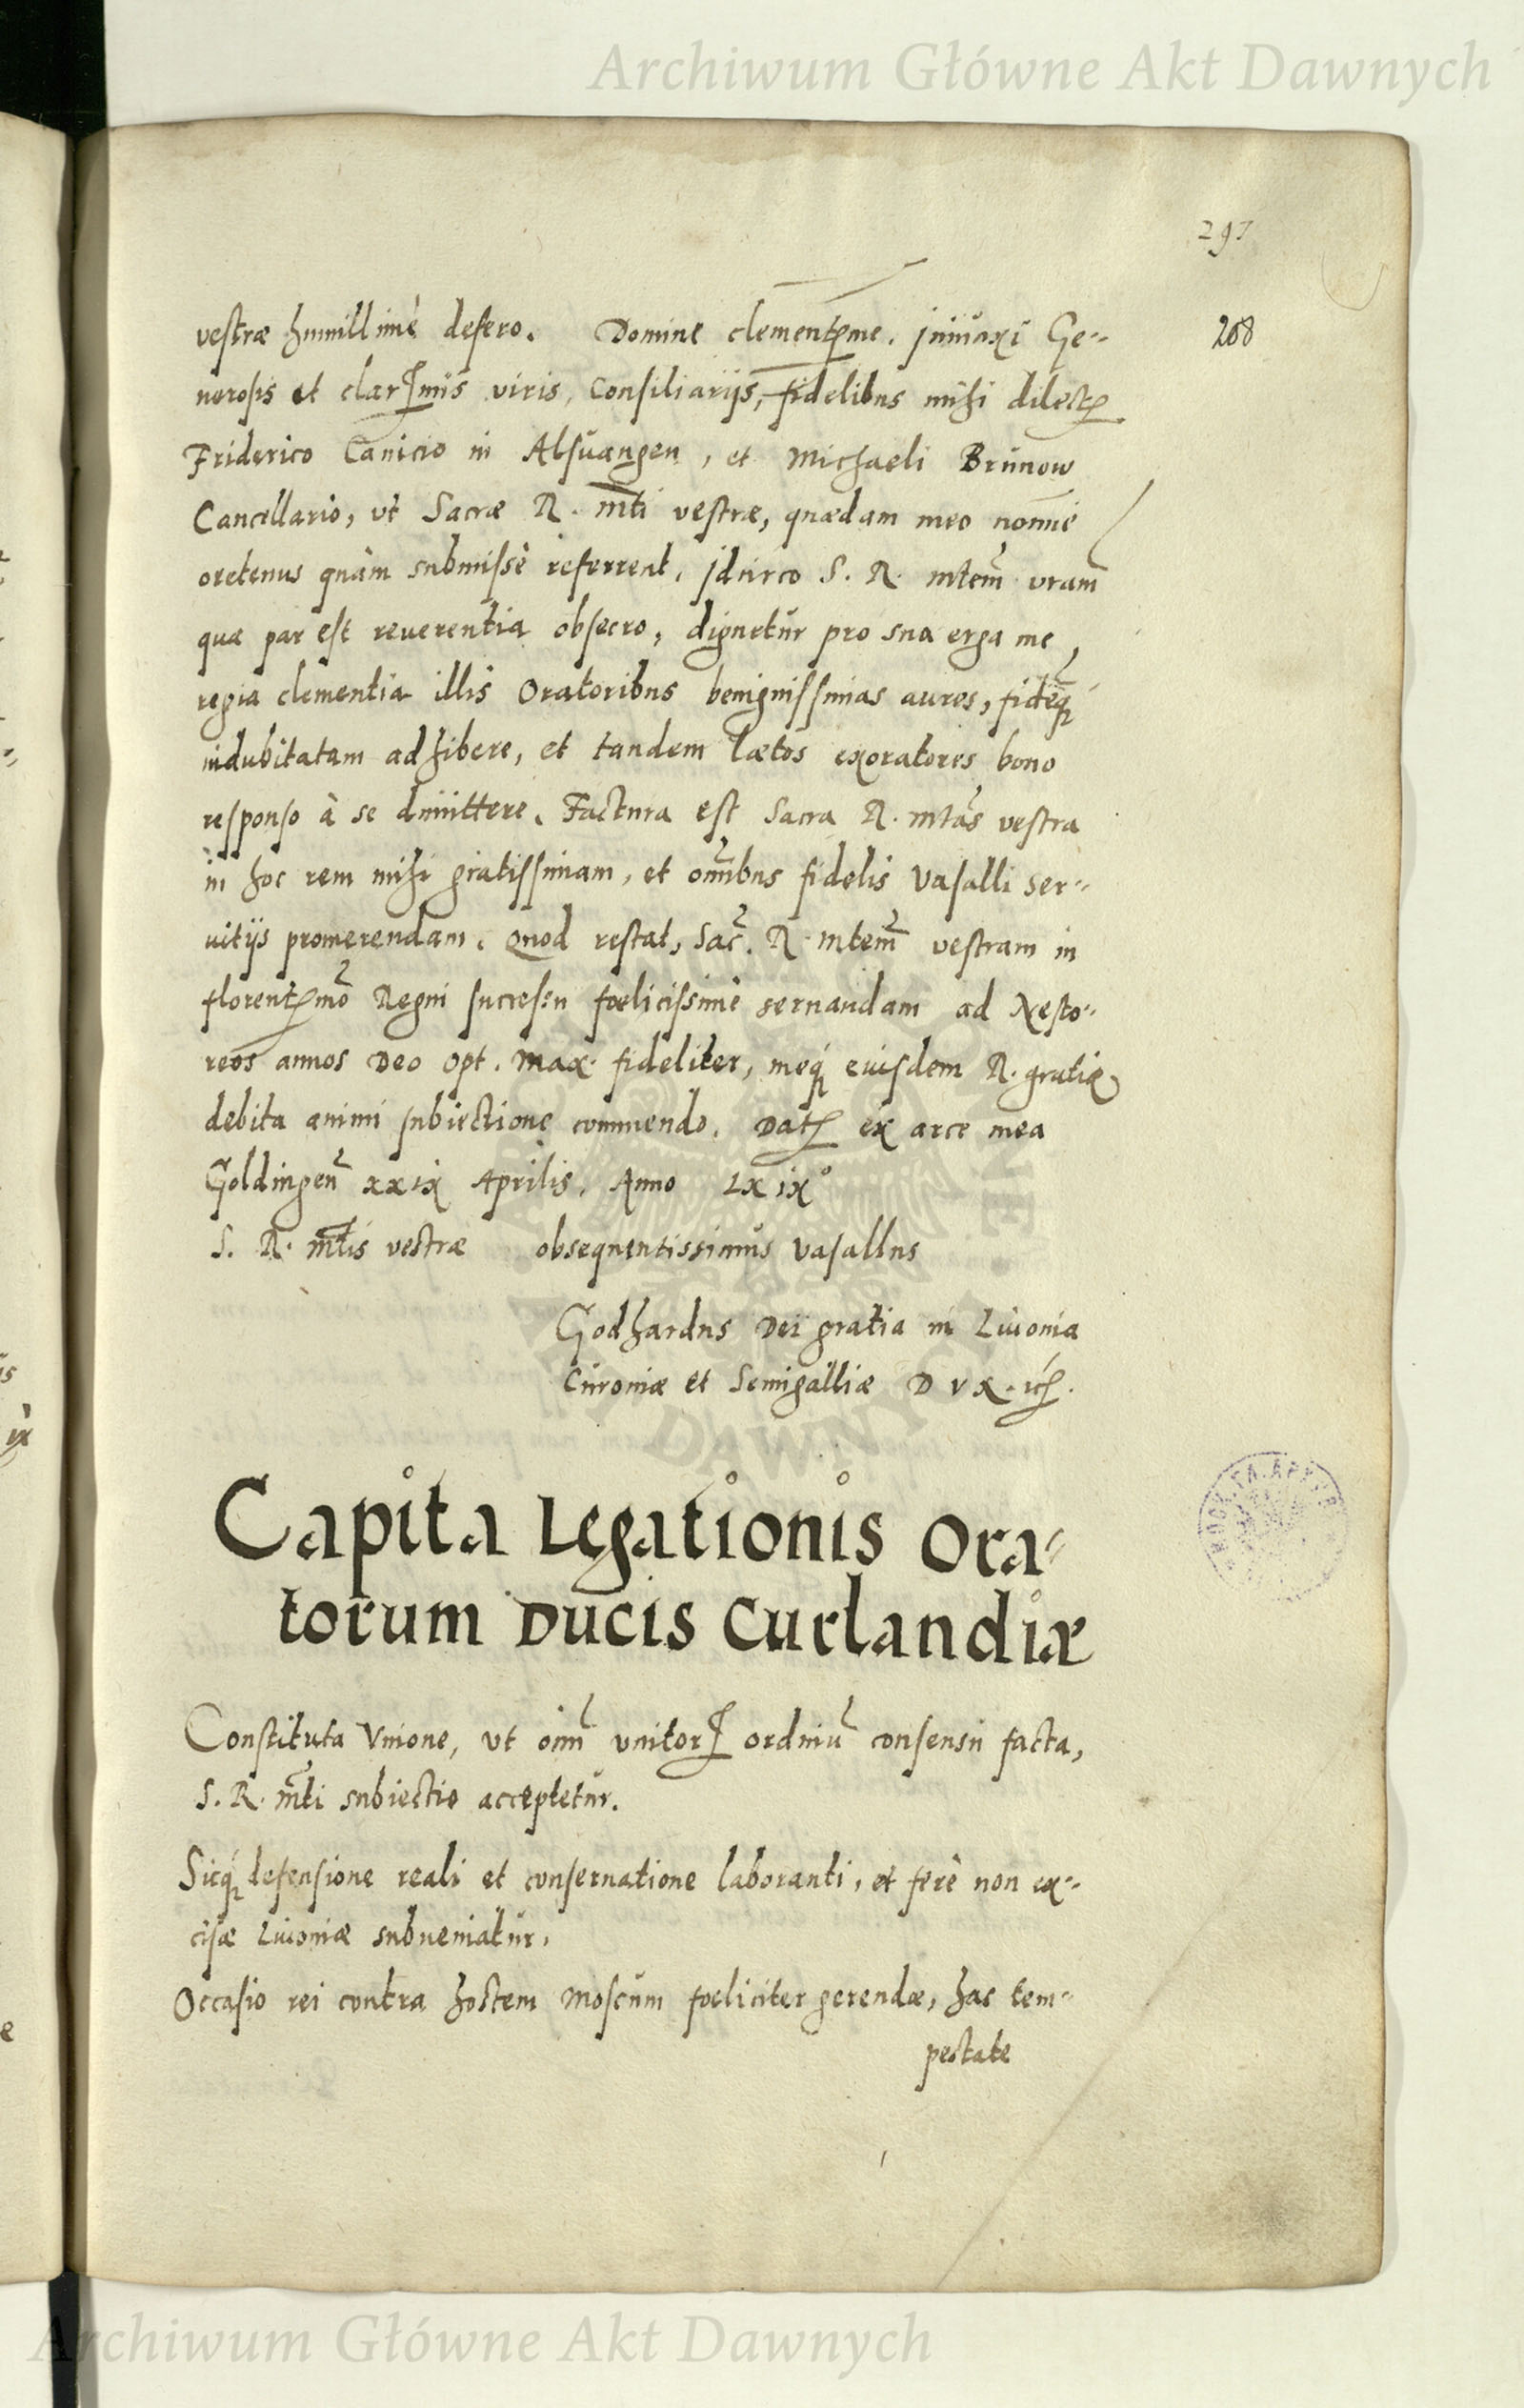 Archiwum Główne Akt Dawnych
297
208
vestræ humillimè defero. Domine clementᵱme. Iniunxi Ge-
nerosis et clarᵱmis viris, Consiliarijs, fidelibus mihi dilectᵱ
Friderico Canicio in Alsuangen, et Michaeli Brunow
Cancellario, ut Sacræ R. Mti vestræ, quædam meo nomine
oretenus quàm submissè referrent. Idcirco S. R. Mtem vram
qua par est reuerentia obsecro, dignetur pro sua erga me,
regia clementia illis Oratoribus benignissimas aures, fidemq́
indubitatam adhibere, et tandem lætos exoratores bono
responso à se dimittere. Factura est Sacra R. Mtas vestra
in hoc rem mihi gratissimam, et omnibus fidelis Vasalli ser-
uitijs promerendam. Quod restat, Sac. R. Mtem vestram in
florentᵱmo Regni successu fœlicissimè seruandam ad Nesto-
reos annos Deo Opt. Max. fideliter, meq́ eiusdem R. gratiæ
debita animi subiectione commendo. Datᵱ ex arce mea
Goldingen xxix Aprilis. Anno Lxix°
S. R. Mtis vestræ obsequentissimus Vasallus
Godhardus Dei gratia in Liuonia
Curoniæ et Semigalliæ DVX. ꝛcᵱ.
Capita Legationis Ora-
torum Ducis Curlandiæ
Constituta Vnione, ut omn unitorᵱ ordinu consensu facta,
S. R. Mti subiectio acceptetur.
Sicq́ defensione reali et conseruatione laboranti, et ferè non ex-
cisæ Liuoniæ subueniatur.
Occasio rei contra hostem Moscum fœliciter gerendæ, hac tem-
pestate
Archiwum Główne Akt Dawnych